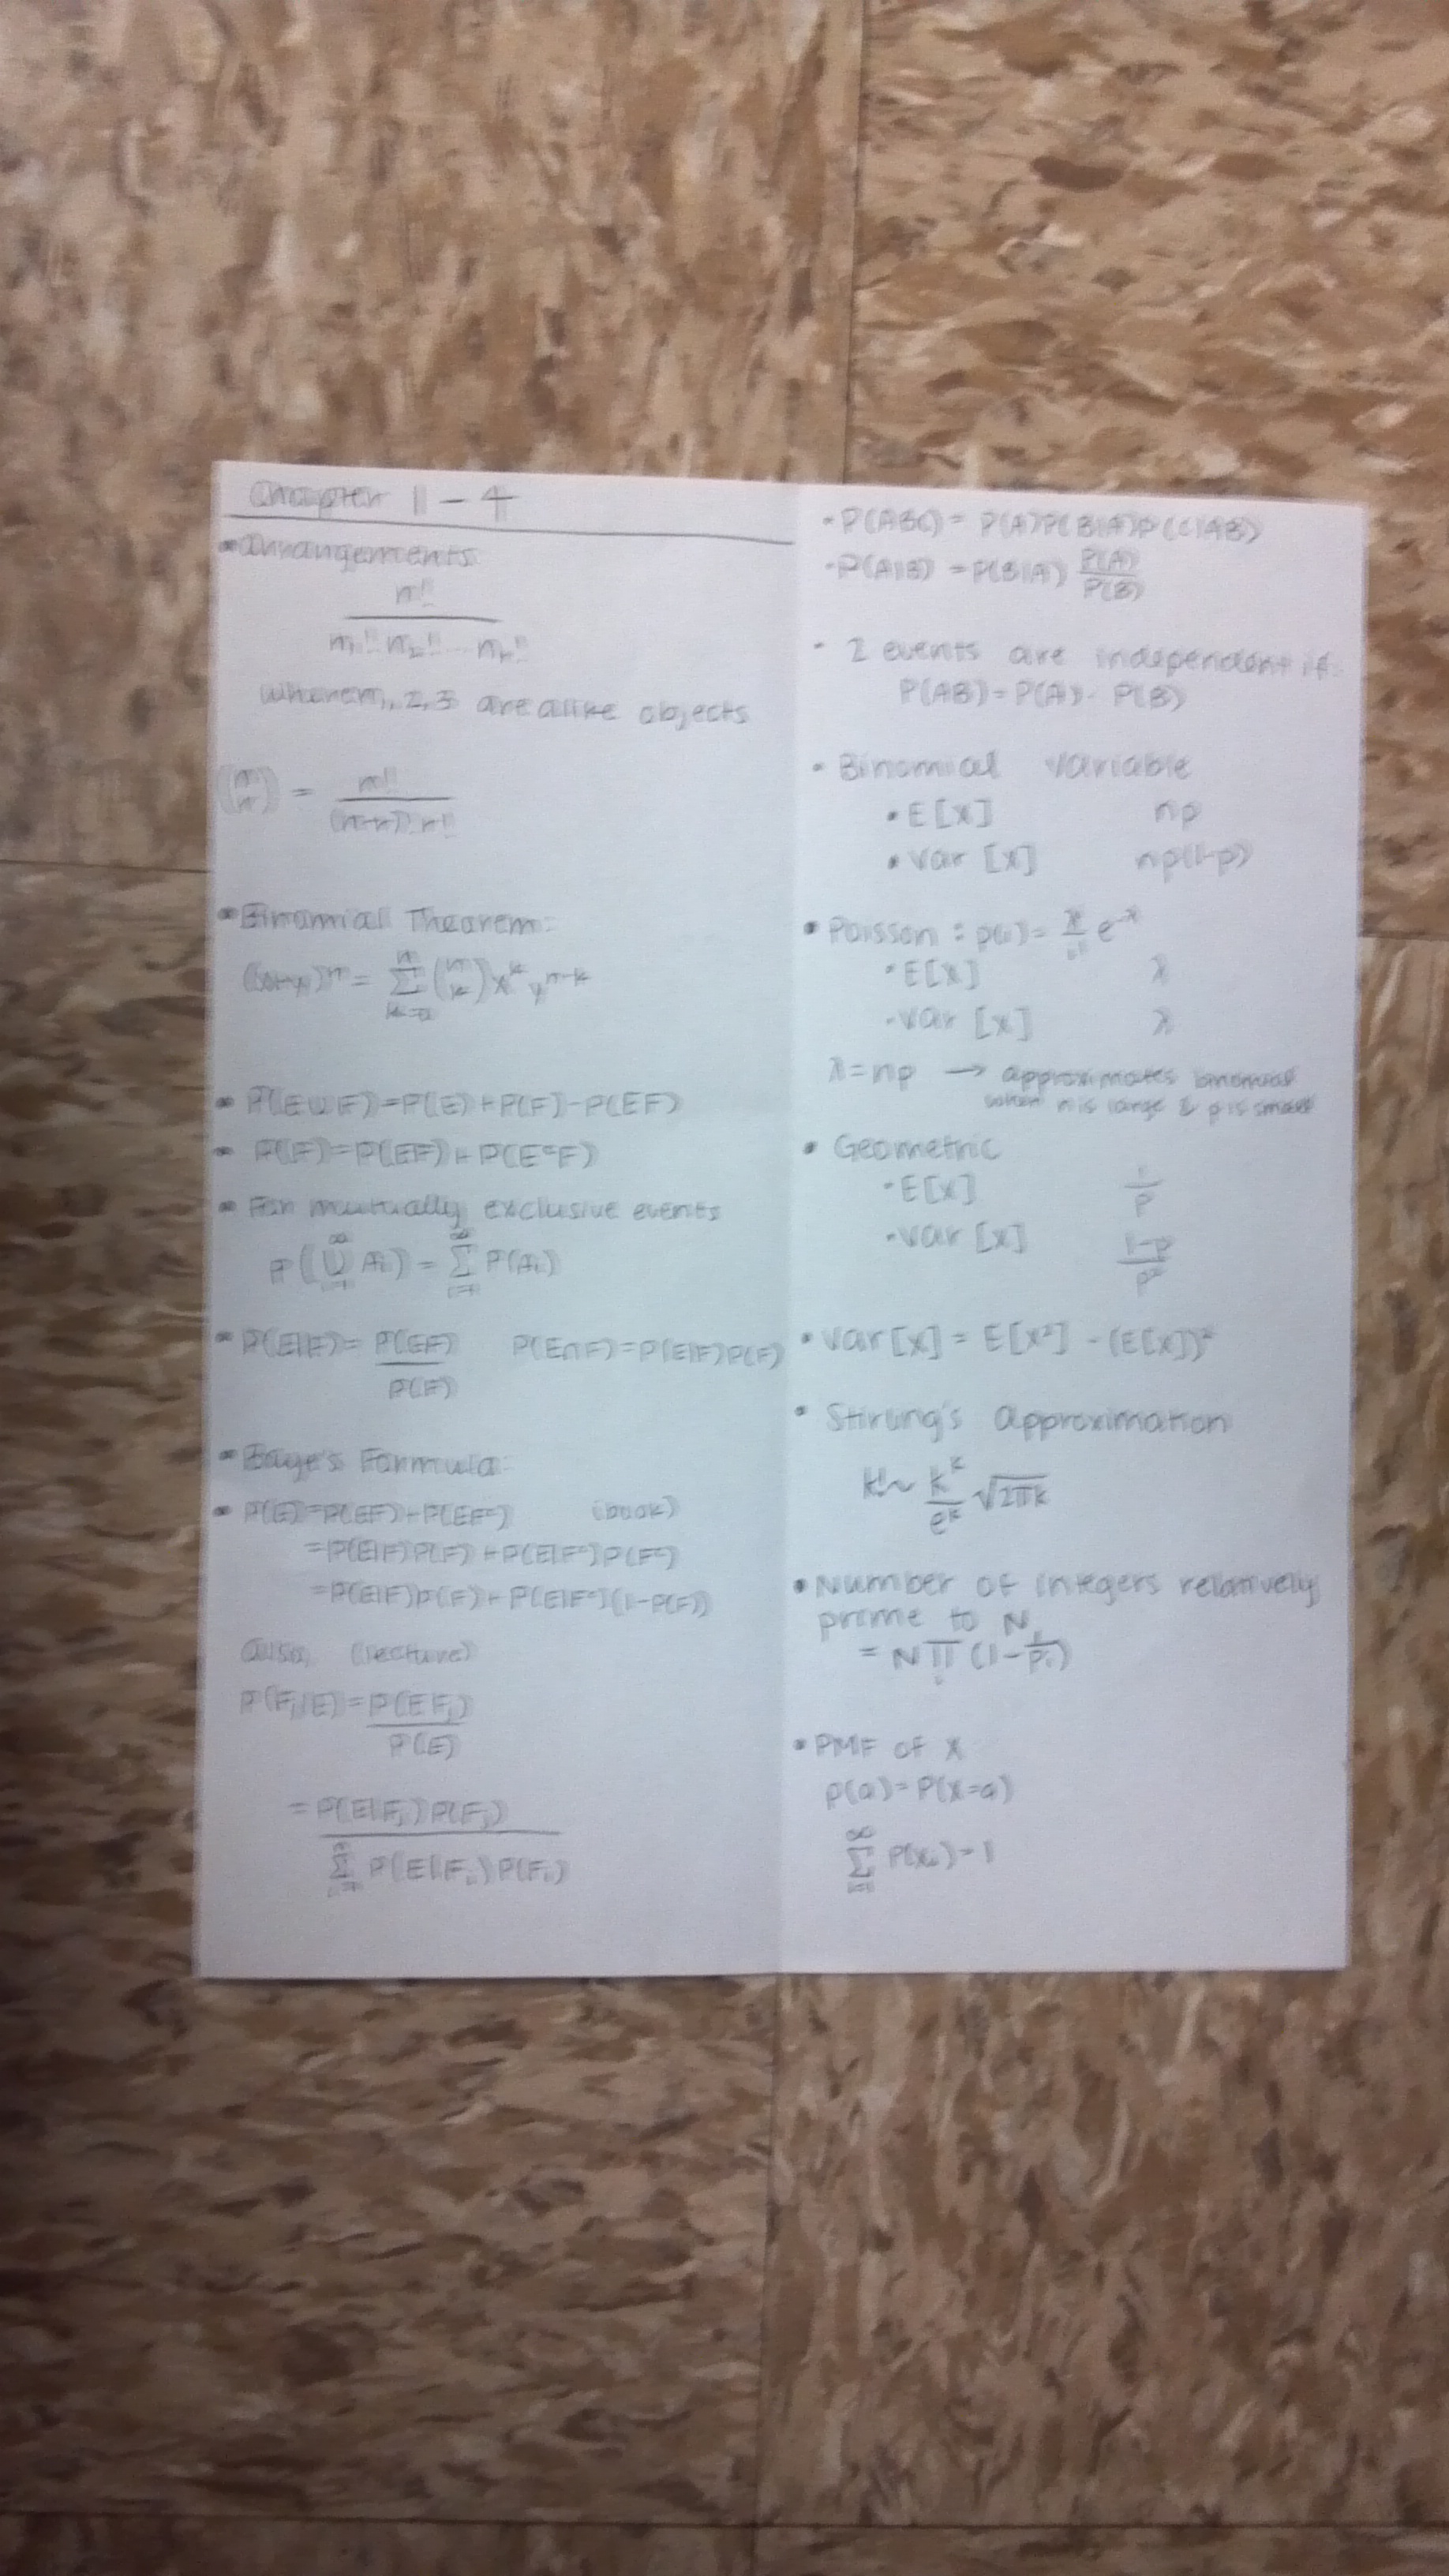 Chapter 1-4
• Arrangements
n!
n₁! n₂! ... nᵣ!
where n₁, 2, 3 are alike objects
(n r) = n! / (n-r)! r!
• Binomial Theorem:
(x+y)ⁿ = Σ_{k=0}^{n} (n k) xᵏ yⁿ⁻ᵏ
• P(E∪F)=P(E)+P(F)-P(EF)
• P(F)=P(EF)+P(EᶜF)
• For mutually exclusive events
P(∪_{i=1}^{∞} Aᵢ) = Σ_{i=1}^{∞} P(Aᵢ)
• P(E|F)= P(EF) / P(F) P(E∩F)=P(E|F)P(F)
• Baye's Formula:
• P(E)=P(EF)+P(EFᶜ) (book)
=P(E|F)P(F)+P(E|Fᶜ)P(Fᶜ)
=P(E|F)P(F)+P(E|Fᶜ)(1-P(F))
Also, (lecture)
P(Fⱼ|E)= P(EFⱼ) / P(E)
= P(E|Fⱼ)P(Fⱼ) / Σ_{i=1}^{n} P(E|Fᵢ)P(Fᵢ)
• P(ABC) = P(A)P(B|A)P(C|AB)
• P(A|B) = P(B|A) P(A)/P(B)
• 2 events are independent if
P(AB)=P(A) · P(B)
• Binomial variable
• E[X] np
• Var [X] np(1-p)
• Poisson : p(i)= λⁱ/i! e^-λ
• E[X] λ
• Var [X] λ
λ=np → approximates binomial
when n is large & p is small
• Geometric
• E[X] 1/p
• Var [X] 1-p / p²
• Var [X] = E[X²] - (E[X])²
• Stirling's Approximation
k!~ kᵏ/eᵏ √2πk
• Number of integers relatively
prime to N
= N ∏ᵢ (1- 1/pᵢ)
• PMF of X
p(a)=P(X=a)
Σ_{i=1}^{∞} P(xᵢ)=1